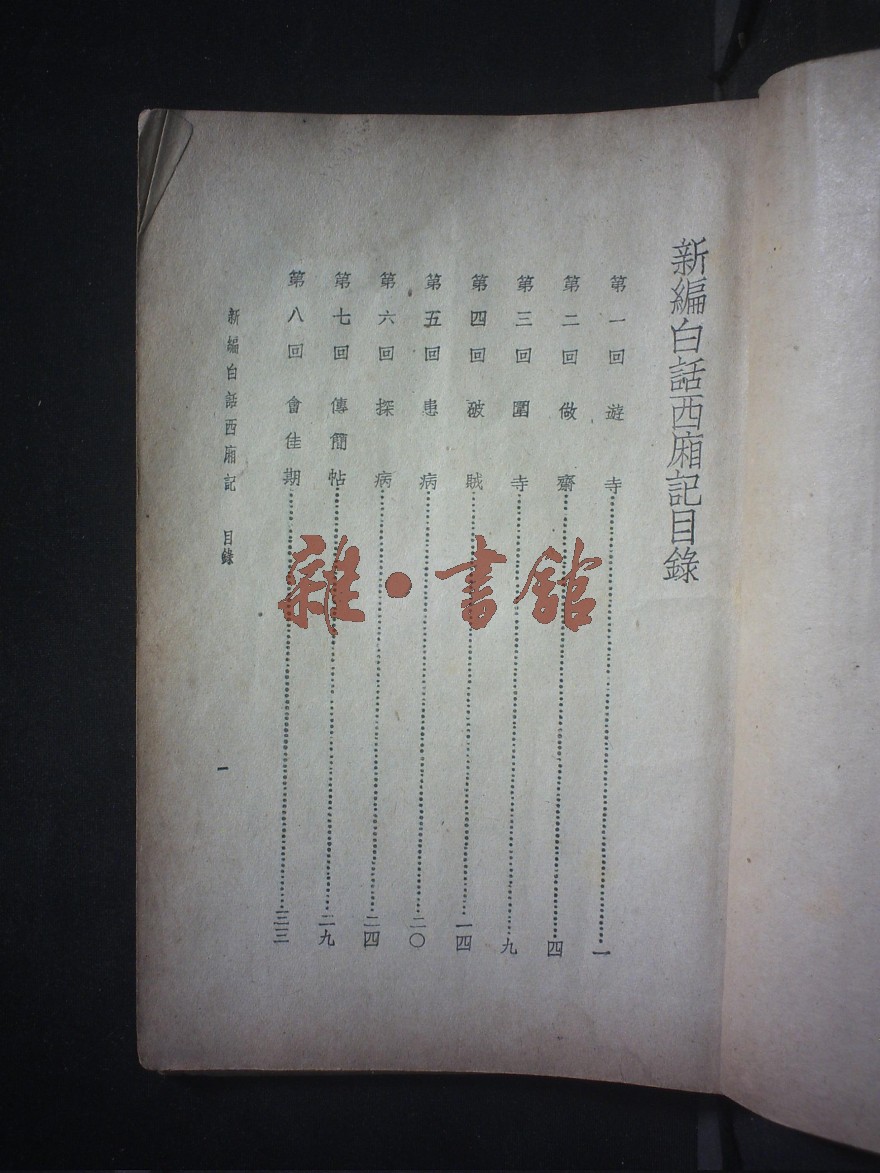 新編白話西廂記目錄
第一回 遊寺……一
第二回 做齋……四
第三回 圍寺……九
第四回 破賊……一四
第五回 患病……二〇
第六回 探病……二四
第七回 傳簡帖……二九
第八回 會佳期……三三
新編白話西廂記 目錄 一
雜·書館